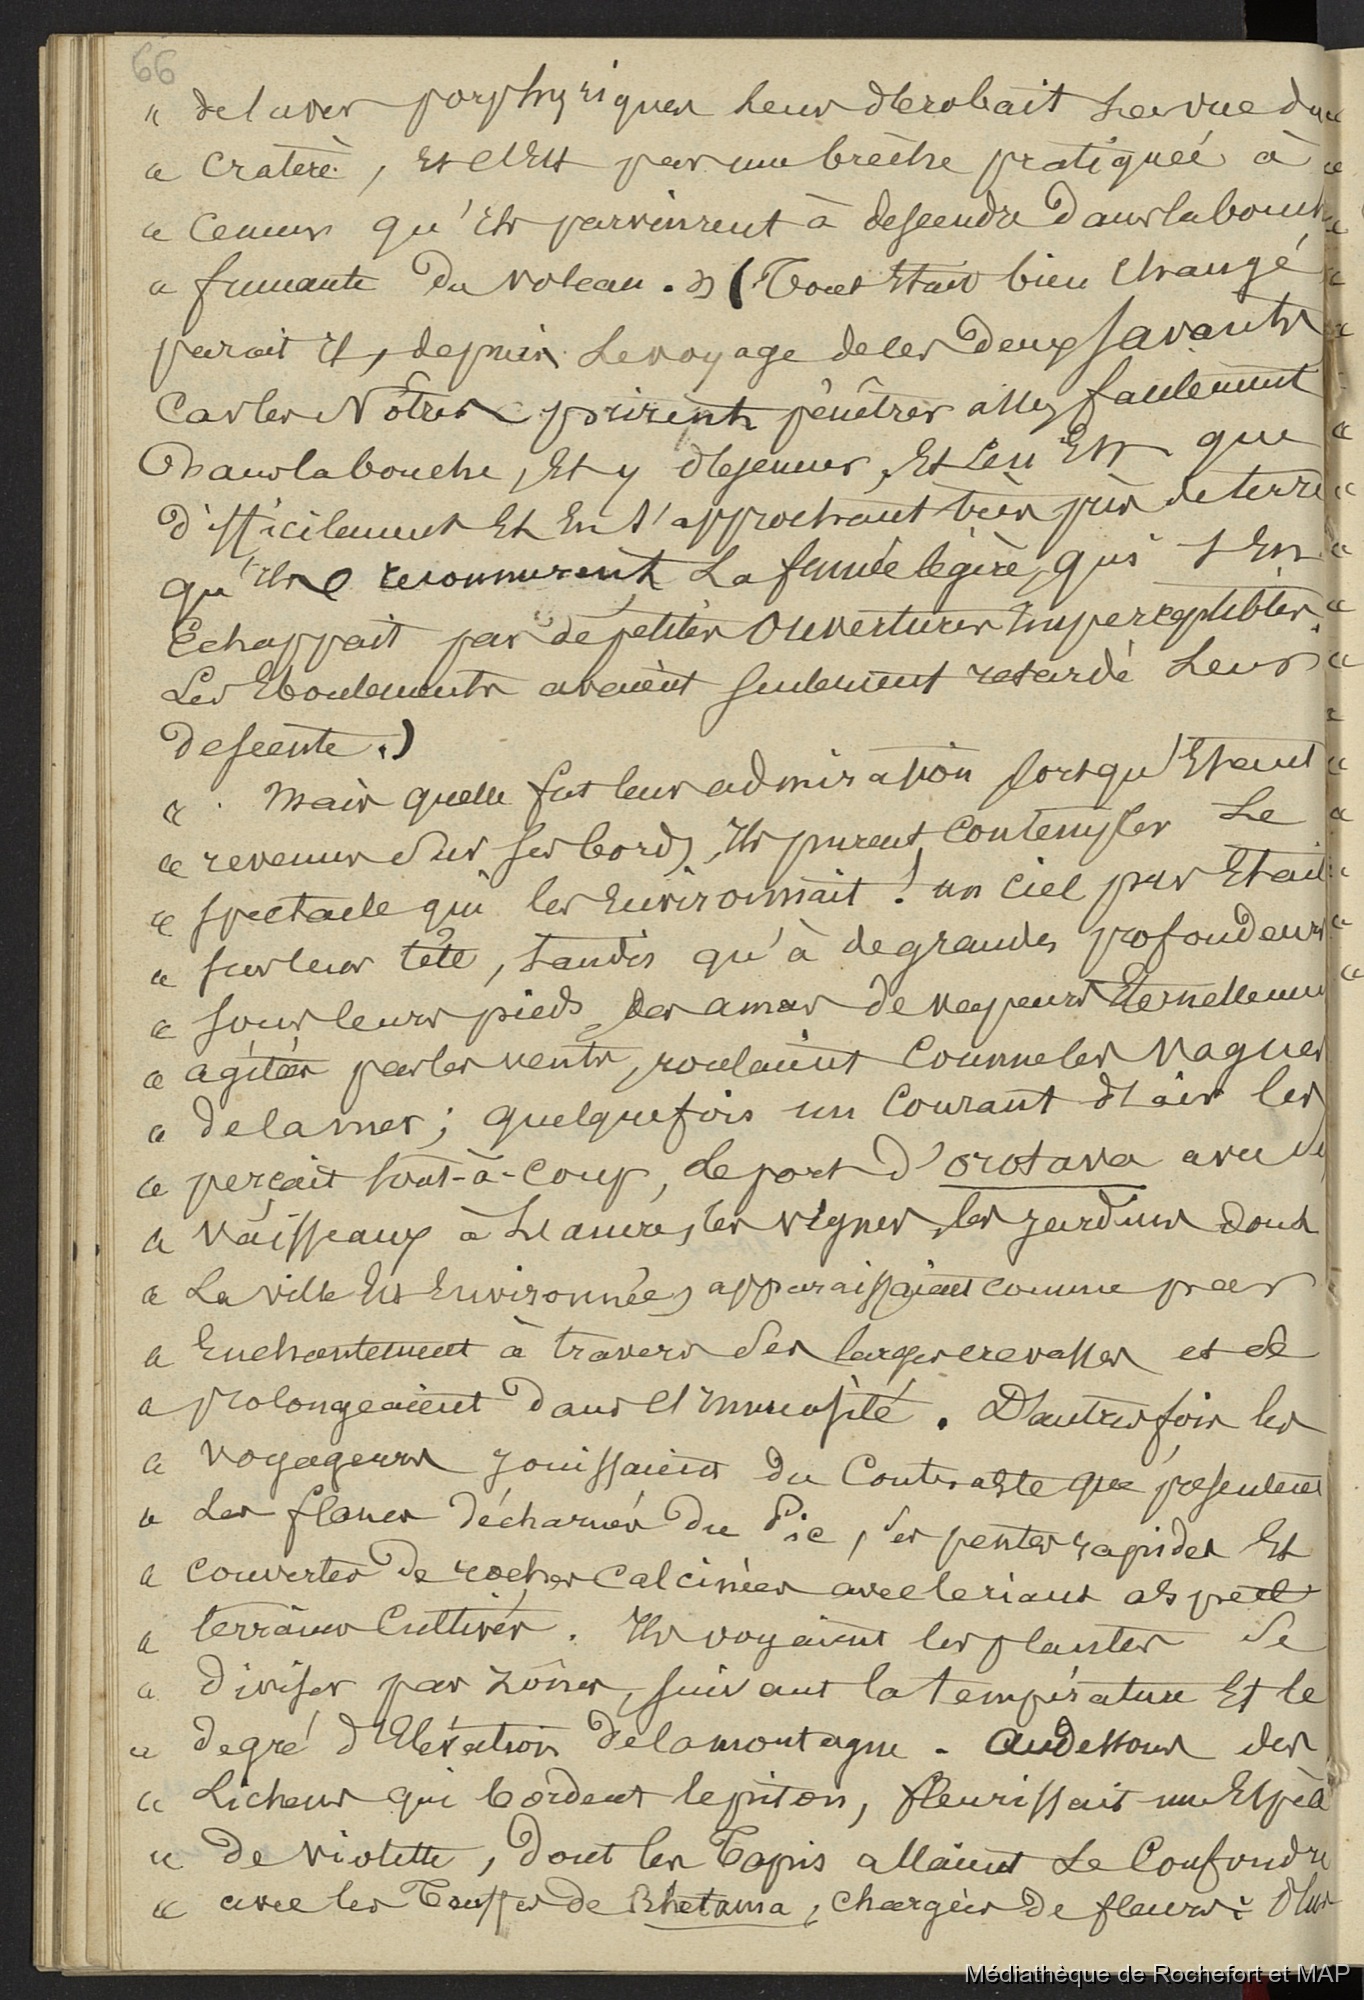 66
« de laves porphyriques leur dérobait la vue du
« cratère, et c'est par une brèche pratiquée à
« ceux qu'ils parvinrent à descendre dans la bouche
« fumante du volcan. » (Tout était bien changé
parait il, depuis le voyage de ces deux savants
car les Nôtres purent pénêtrer assez facilement
dans la bouche, et y déjeuner, et ce n'est que
difficilement et en s'approchant bien près de terre
qu'ils reconnurent la fumée légère, qui s'en
Echappait par de petites ouvertures imperceptibles.
Les Eboulements avaient seulement retardé leur
descente.)
« Mais quelle fut leur admiration lorsqu'étant
« revenus sur ses bords, ils purent contempler le
« spectacle qui les environnait! un ciel pur était
« sur leur tête, tandis qu'à de grandes profondeurs
« sous leurs pieds des amas de vapeurs éternellement
« agités par les vents, roulaient comme les vagues
« de la mer; quelquefois un courant d'air les
« perçait tout-à-coup, le port d'orotava avec ses
« vaisseaux à l'ancre, les vignes, les jardins dont
« la ville est environnée, apparaissaient comme par
« Enchantement à travers des larges crevasses et se
« prolongeaient dans l'immensité. D'autres fois les
« voyageurs jouissaient du contraste que présentaient
« les flancs décharnés du Pic, ses pentes rapides et
« couvertes de roches calcinées avec le riant aspect
« terrains cultivés. Ils voyaient les plantes se
« diviser par zônes, suivant la température et le
« degré d'Elévation de la montagne. Au dessous des
« Lichens qui bordent le piton, fleurissait une Espèce
« de violette, dont les tapis allaient se confondre
« avec les touffes de Rhetama, chargées de fleurs. Plus
Médiathèque de Rochefort et MAP